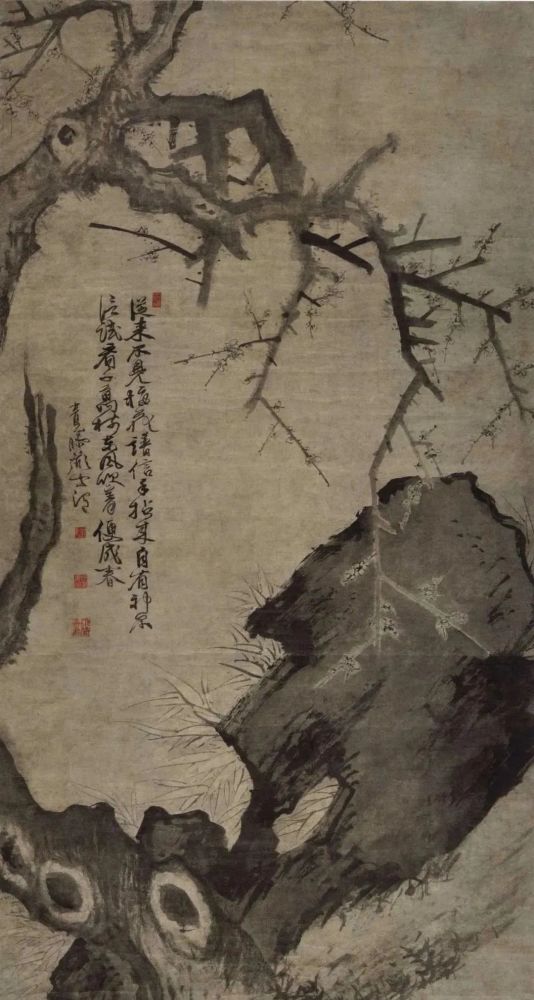 從來不見梅花譜信手拈來自有神不
信試看千萬樹東風吹着便成春
青藤道士渭